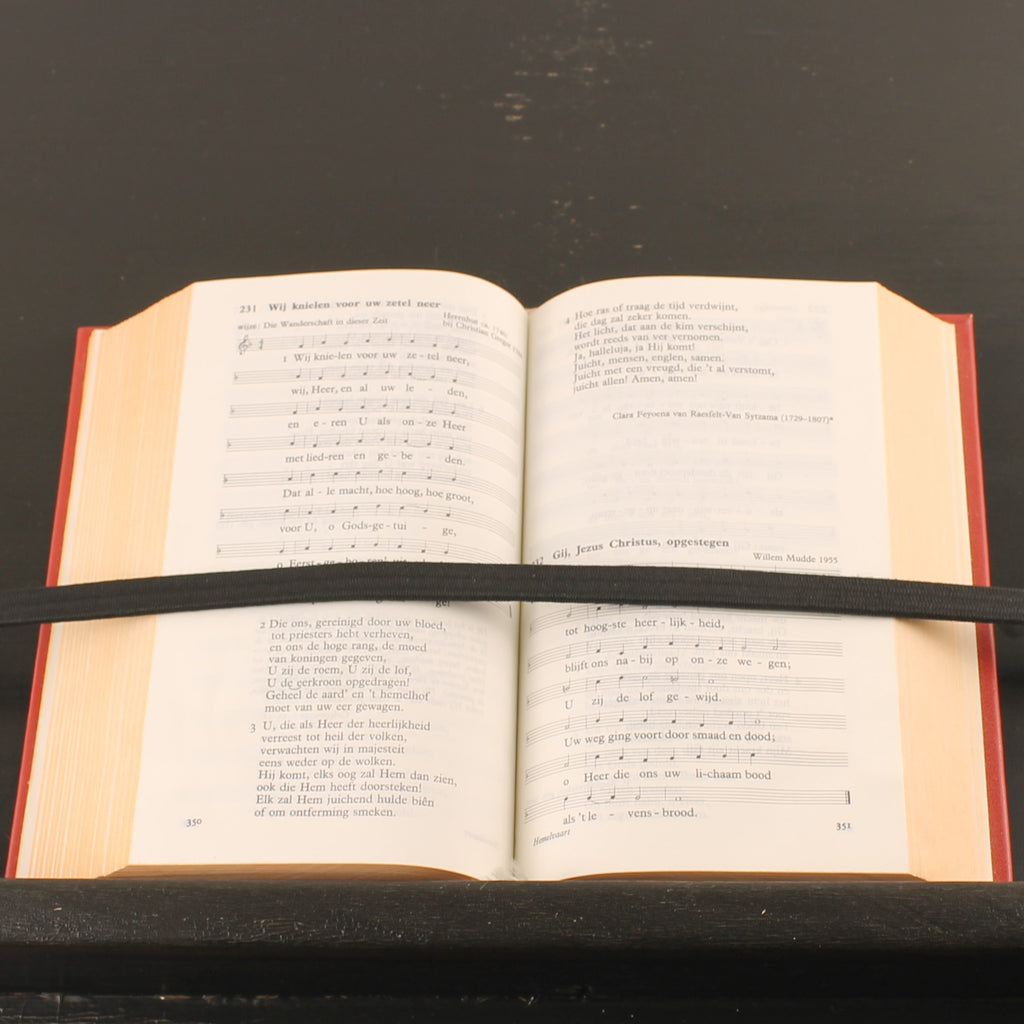 231 Wij knielen voor uw zetel neer
wijze: Die Wanderschaft in dieser Zeit
Herrnhut ca. 1740
bij Christian Gregor
1 Wij knie-len voor uw ze-tel neer,
wij, Heer, en al uw le - den,
en e-ren U als on-ze Heer
met lied-ren en ge-be - den.
Dat al-le macht, hoe hoog, hoe groot,
voor U, o Gods-ge-tui - ge,
o Eerst-ge-bo-ren!
ge!
2 Die ons, gereinigd door uw bloed,
tot priesters hebt verheven,
en ons de hoge rang, de moed
van koningen gegeven,
U zij de roem, U zij de lof,
U de eerkroon opgedragen!
Geheel de aard' en 't hemelhof
moet van uw eer gewagen.
3 U, die als Heer der heerlijkheid
verreest tot heil der volken,
verwachten wij in majesteit
eens weder op de wolken.
Hij komt, elks oog zal Hem dan zien,
ook die Hem heeft doorsteken!
Elk zal Hem juichend hulde biên
of om ontferming smeken.
350
4 Hoe ras of traag de tijd verdwijnt,
die dag zal zeker komen.
Het licht, dat aan de kim verschijnt,
wordt reeds van ver vernomen.
Ja, halleluja, ja Hij komt!
Juicht, mensen, englen, samen.
Juicht met een vreugd, die 't al verstomt,
juicht allen! Amen, amen!
Clara Feyoena van Raesfelt-Van Sytzama (1729-1807)*
Gij, Jezus Christus, opgestegen
Willem Mudde 1955
tot hoog-ste heer-lijk-heid,
blijft ons na-bij op on-ze we-gen;
U zij de lof ge-wijd.
Uw weg ging voort door smaad en dood;
o Heer die ons uw li-chaam bood
als 't le - vens-brood.
Hemelvaart
351